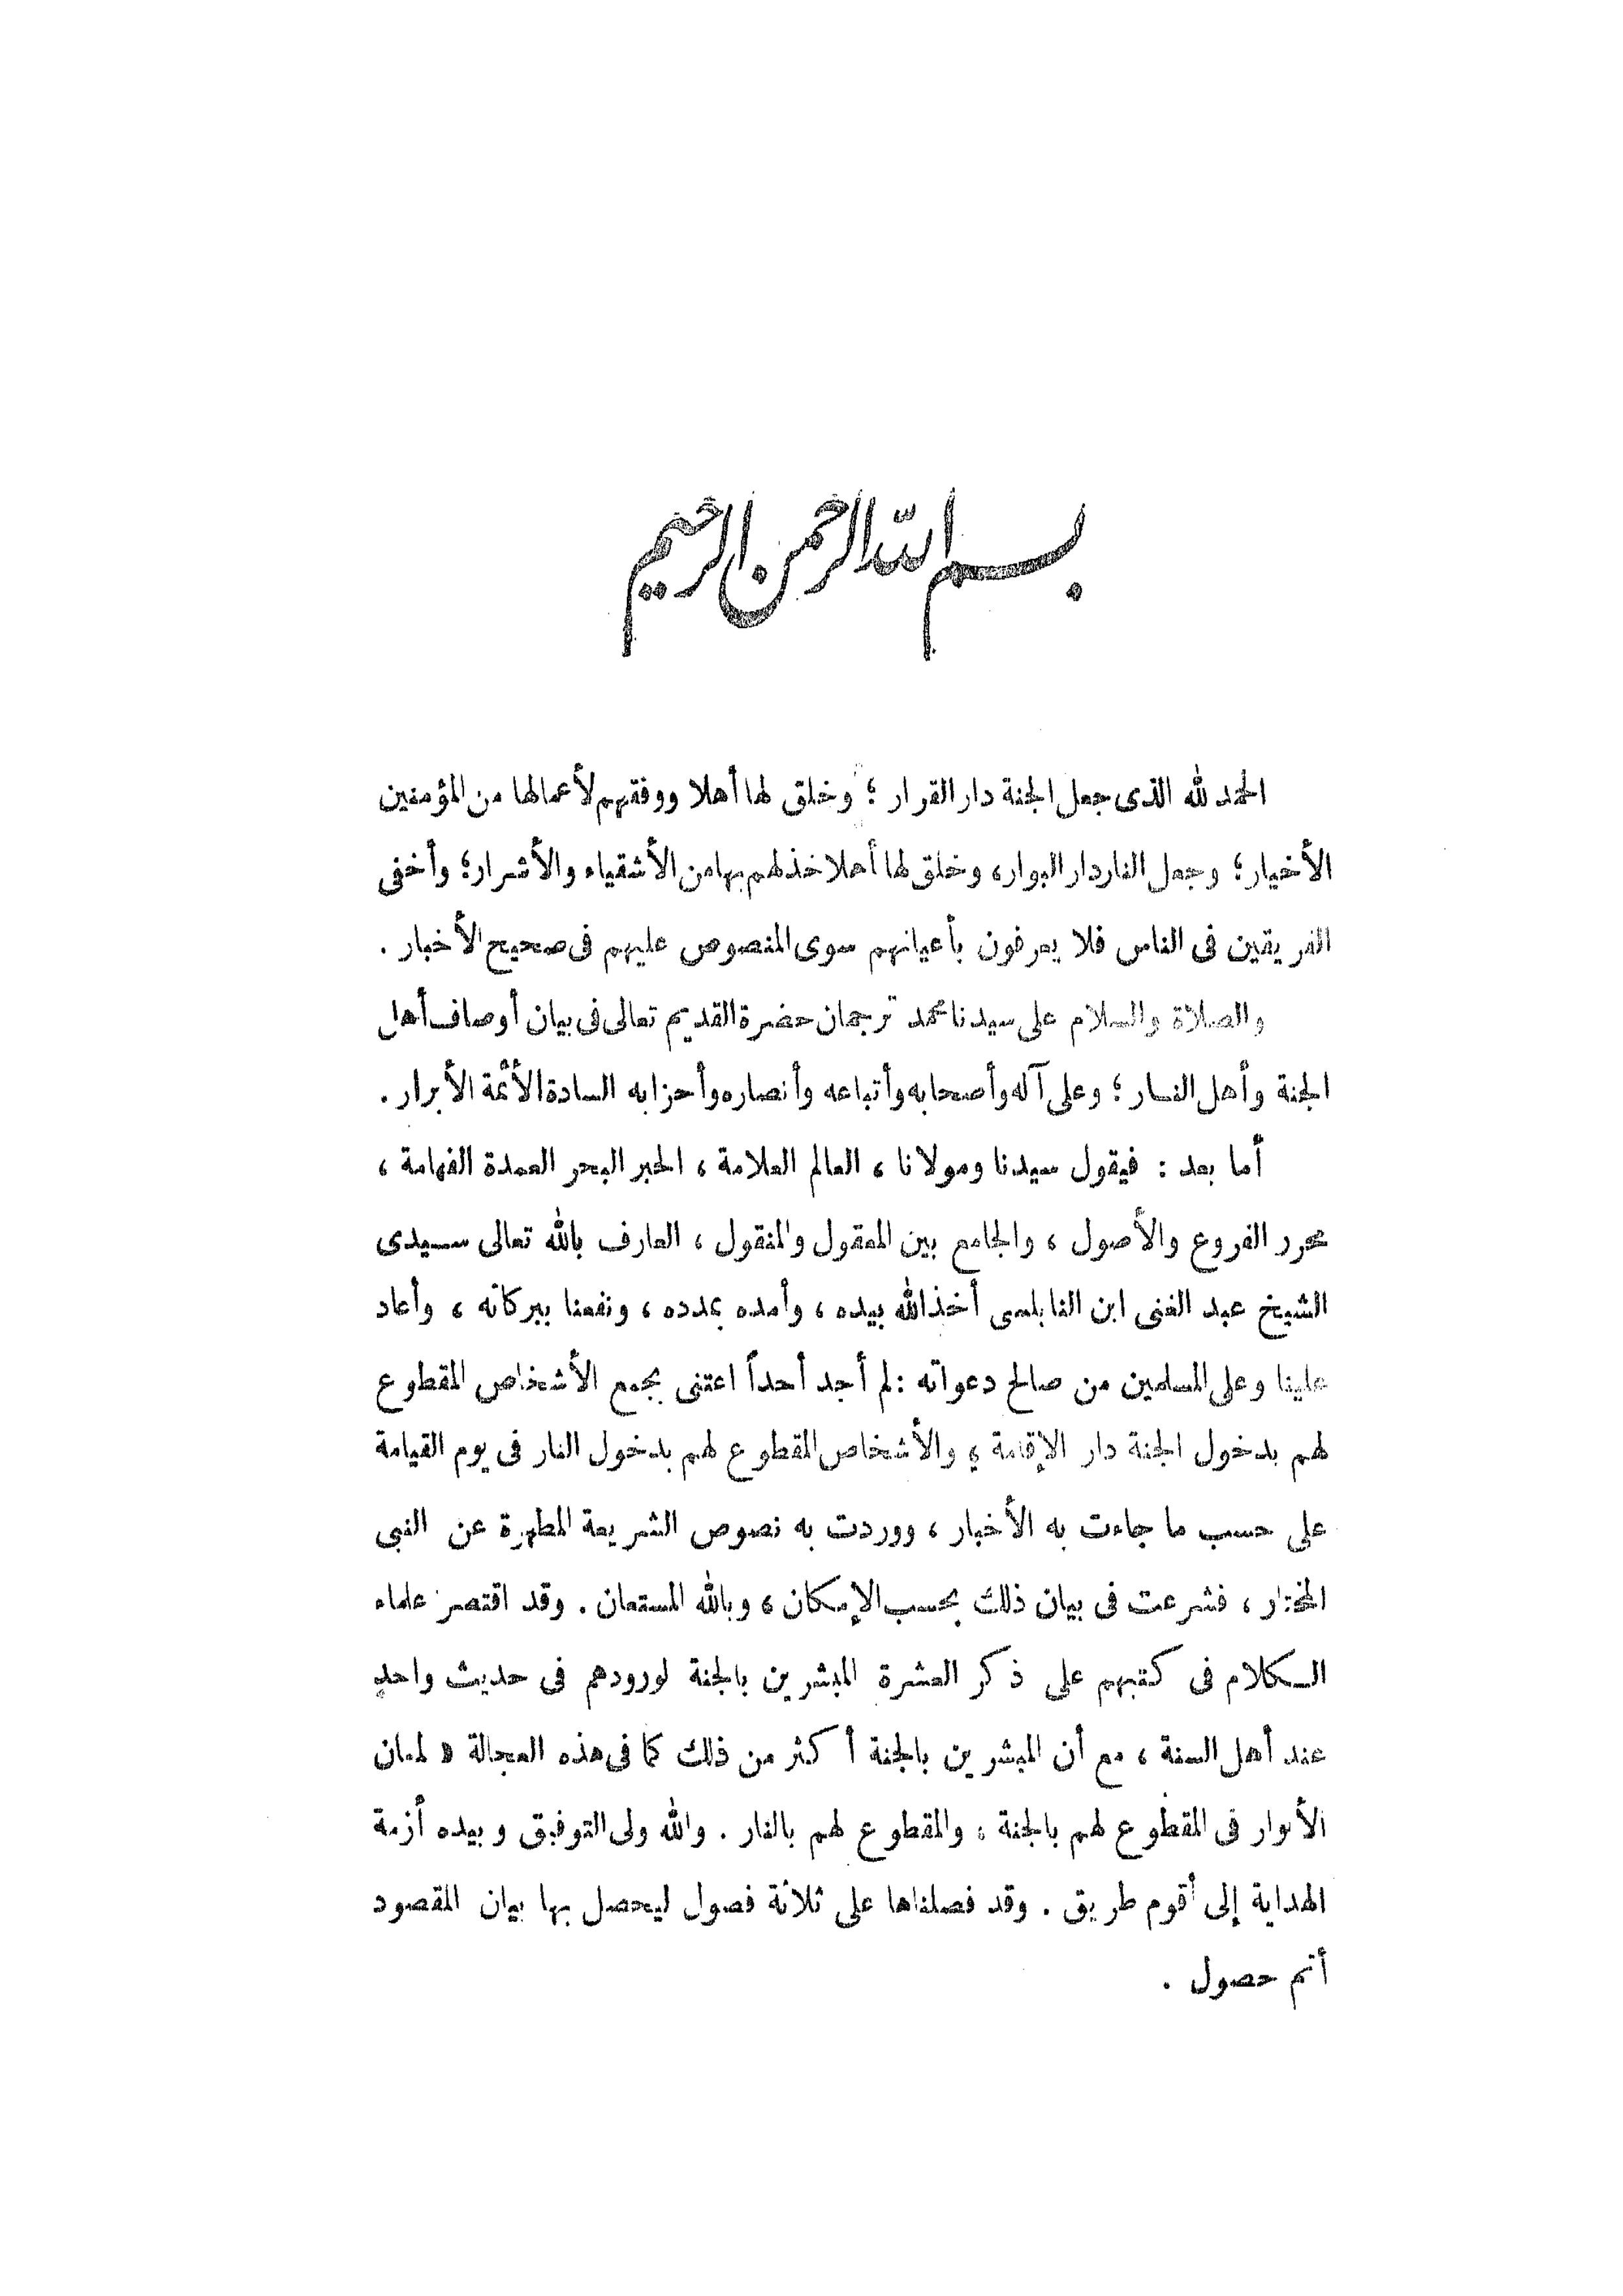 بسم الله الرحمن الرحيم
الحمد لله الذى جعل الجنة دار القرار ؛ وخلق لها أهلا ووفقهم لأعمالها من المؤمنين
الأخيار ؛ وجعل النار دار البوار ، وخلق لها أهلا خذلهم بها من الأشقياء والأشرار ؛ وأخفى
الفريقين فى الناس فلا يعرفون بأعيانهم سوى المنصوص عليهم فى صحيح الأخبار .
والصلاة والسلام على سيدنا محمد ترجمان حضرة القديم تعالى فى بيان أوصاف أهل
الجنة وأهل النار ؛ وعلى آله وأصحابه وأتباعه وأنصاره وأحزابه السادة الأئمة الأبرار .
أما بعد : فيقول سيدنا ومولانا ، العالم العلامة ، الحبر البحر العمدة الفهامة ،
محرر الفروع والأصول ، والجامع بين المعقول والمنقول ، العارف بالله تعالى سيدى
الشيخ عبد الغنى ابن النابلسى أخذ الله بيده ، وأمده بمدده ، ونفعنا ببركاته ، وأعاد
علينا وعلى المسلمين من صالح دعواته : لم أجد أحداً اعتنى بجمع الأشخاص المقطوع
لهم بدخول الجنة دار الإقامة ؛ والأشخاص المقطوع لهم بدخول النار فى يوم القيامة
على حسب ما جاءت به الأخبار ، ووردت به نصوص الشريعة المطهرة عن النبى
المختار ، فشرعت فى بيان ذلك بحسب الإمكان ، وبالله المستعان . وقد اقتصر علماء
الكلام فى كتبهم على ذكر العشرة المبشرين بالجنة لورودهم فى حديث واحد
عند أهل السنة ، مع أن المبشرين بالجنة أكثر من ذلك كما فى هذه العجالة « لمعان
الأنوار فى المقطوع لهم بالجنة ، والمقطوع لهم بالنار . والله ولى التوفيق وبيده أزمة
الهداية إلى أقوم طريق . وقد فصلناها على ثلاثة فصول ليحصل بها بيان المقصود
أتم حصول .